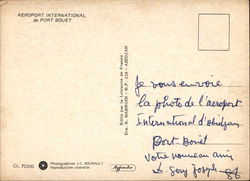 AEROPORT INTERNATIONAL
de PORT BOUET
Edité par la Librairie de France
ABIDJAN
Je vous envoie
la photo de l'aeroport
international d'Abidjan
Port Bouet
votre nouveau ami
Joseph
CL. 77200
Photographies J.C. NOURAULT
Reproduction interdite